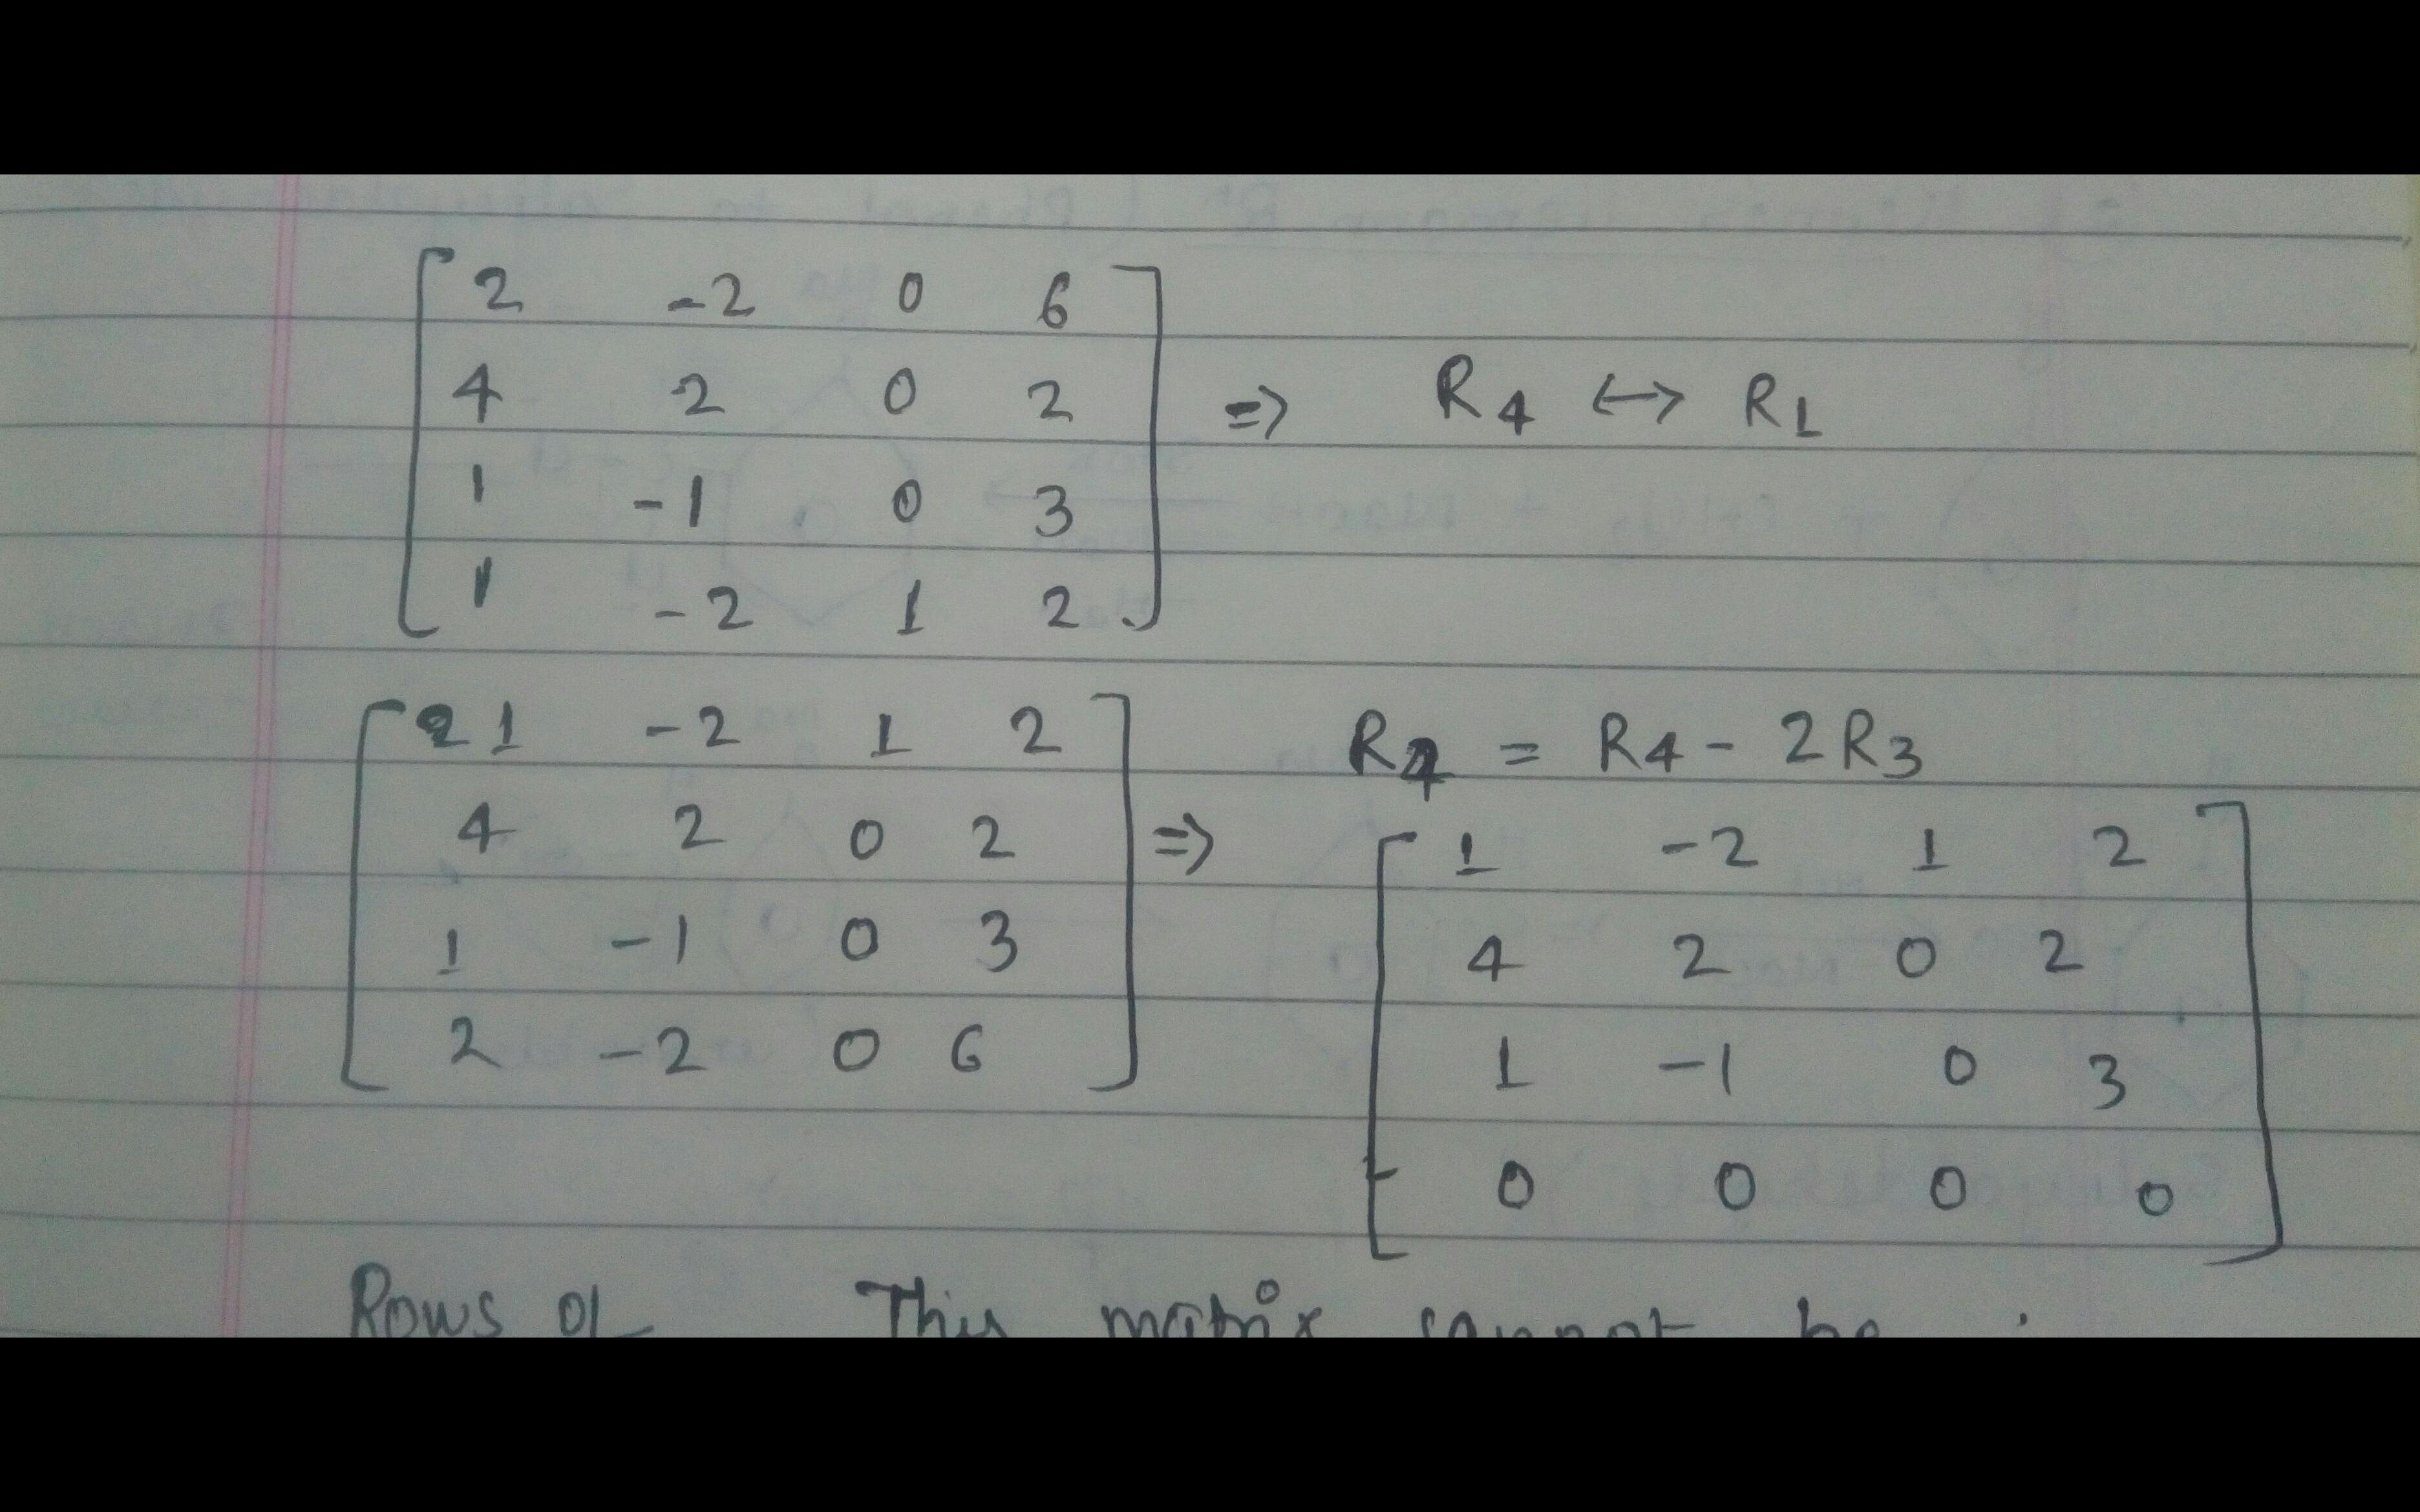 2 -2 0 6
4 2 0 2
1 -1 0 3
1 -2 1 2
⇒ R4 ↔ R1
1 -2 1 2
4 2 0 2
1 -1 0 3
2 -2 0 6
⇒ R4 = R4 - 2R3
1 -2 1 2
4 2 0 2
1 -1 0 3
0 0 0 0
Rows of This matrix cannot be